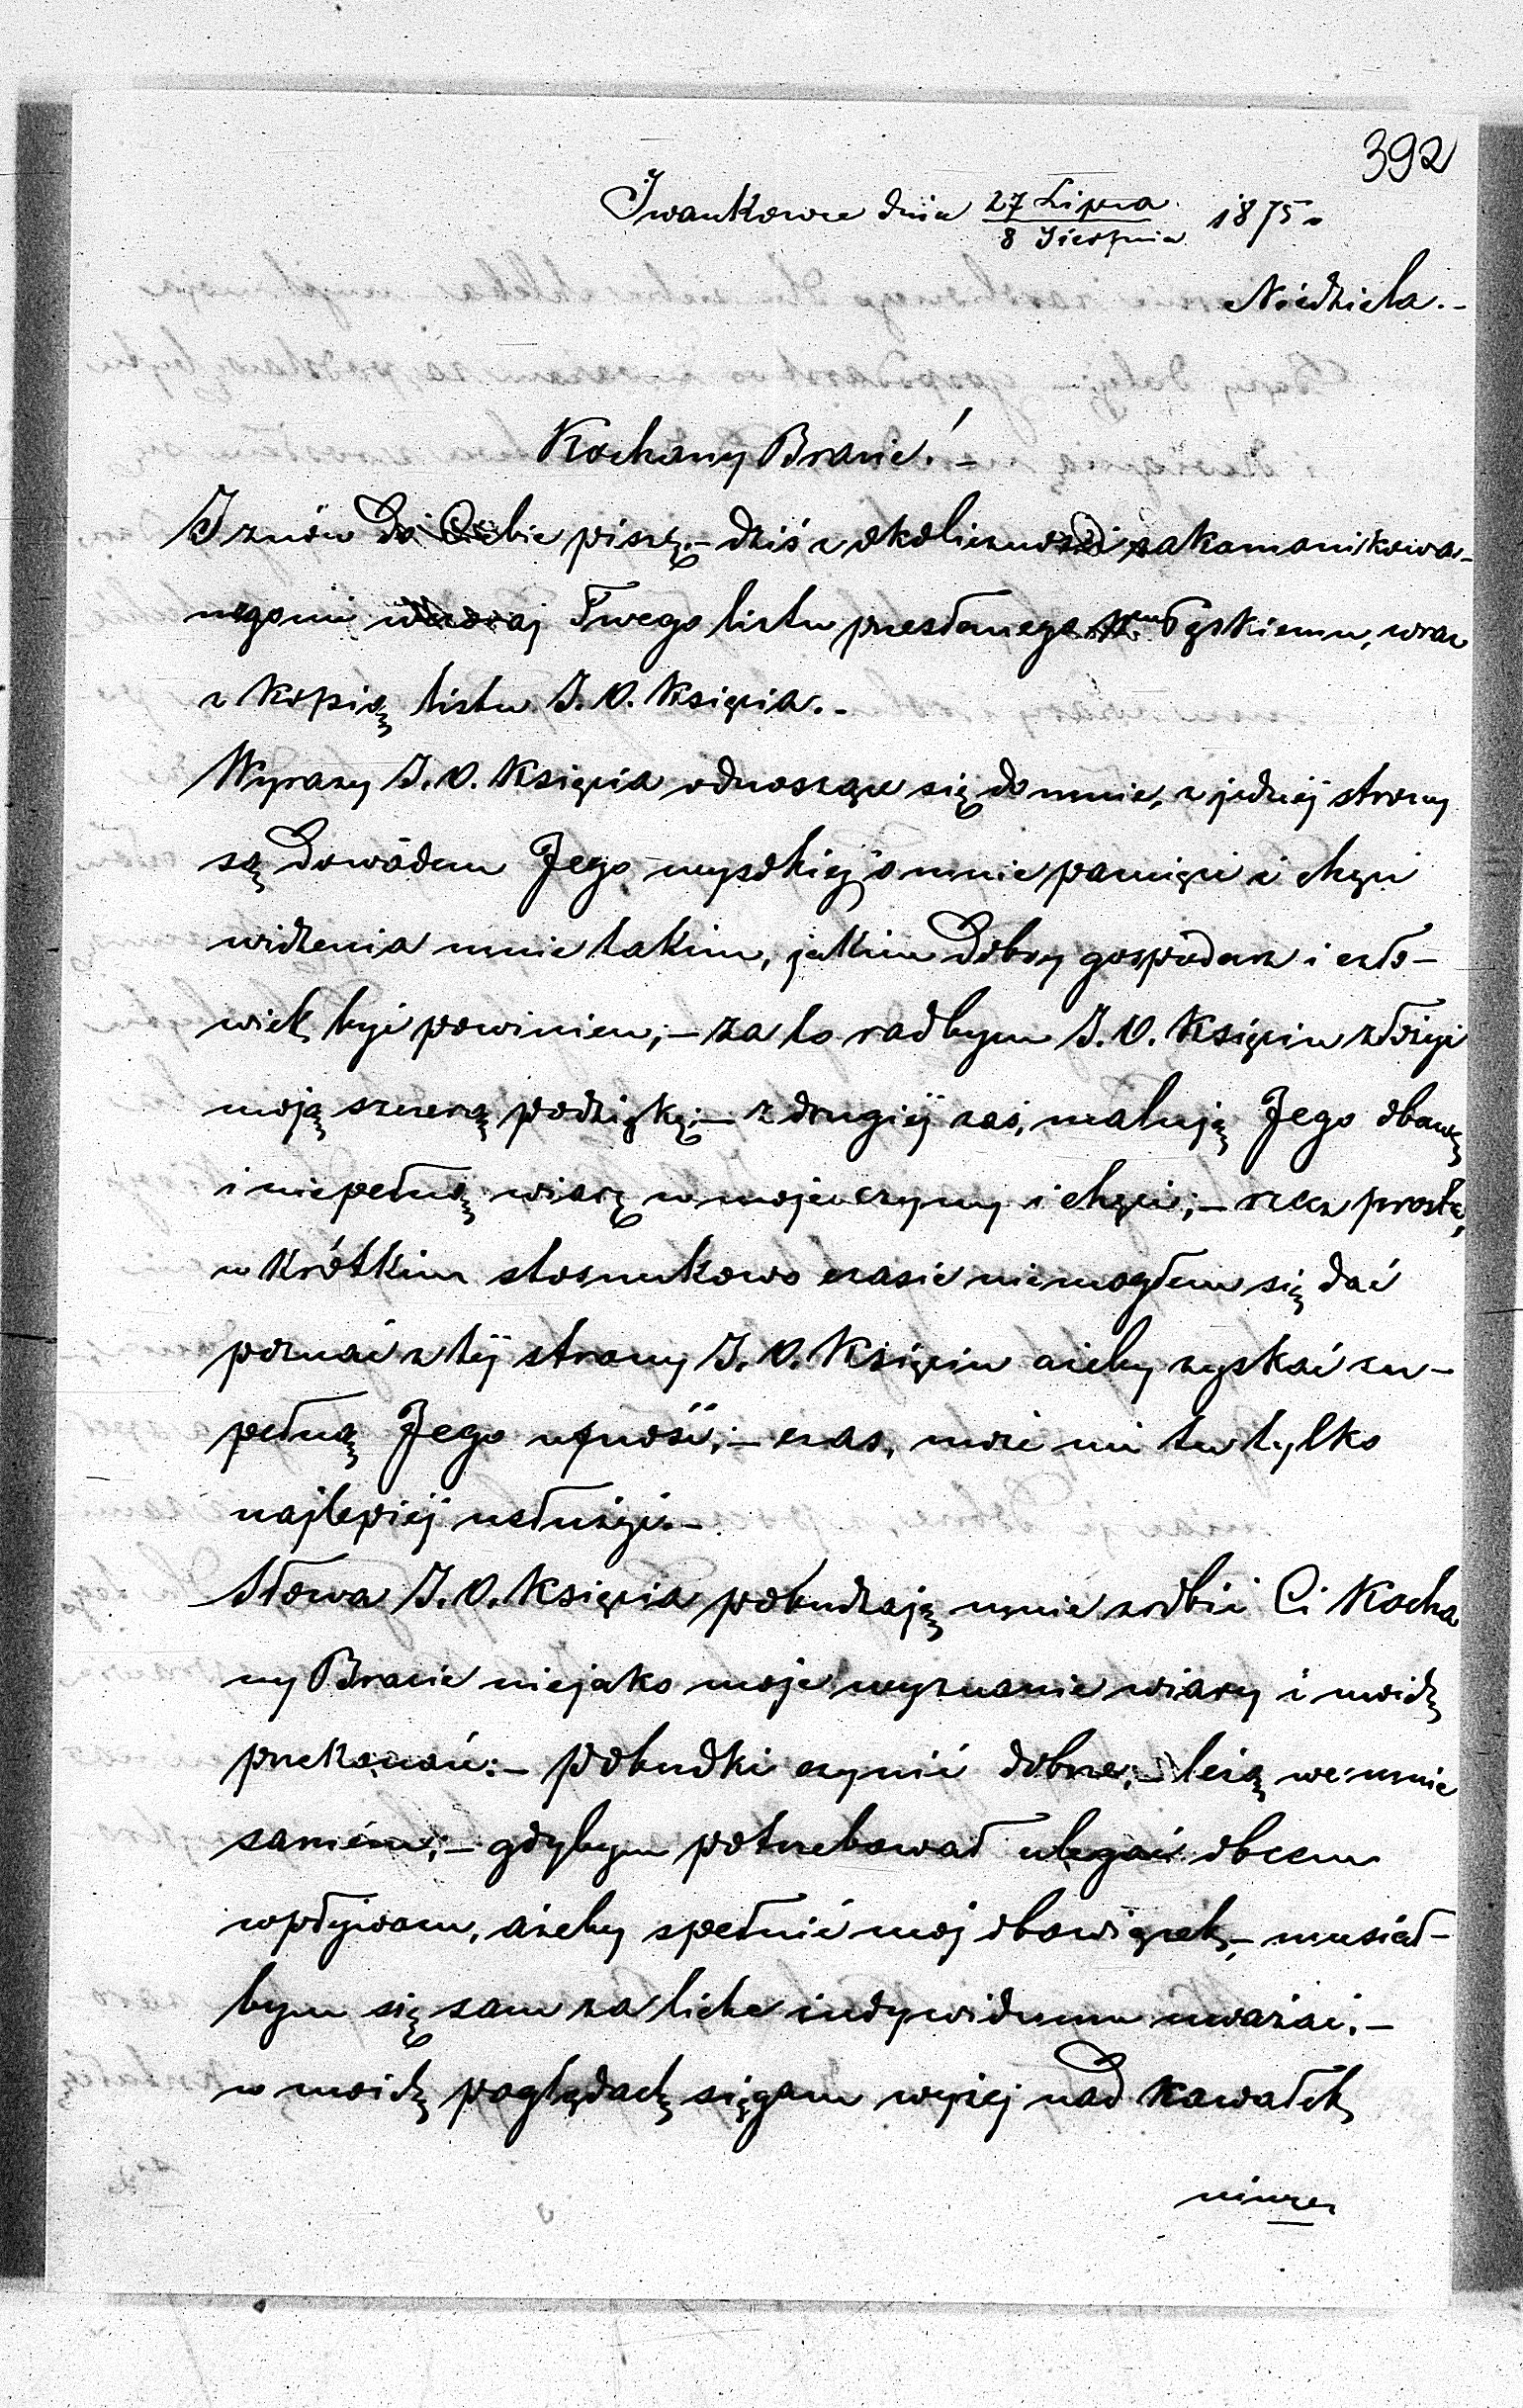 392
Iwankowce dnia 27 Lipca / 8 Sierpnia 1875.
Niedziela.–
Kochany Bracie!–
I znów do Ciebie piszę;– dziś z okoliczności zakomunikowa-
negomi wczoraj Twego listu przesłanego Pęskiemu, wraz
z kopią listu J. O. Księcia.–
Wyrazy J. O. Księcia odnoszące się do mnie, z jednéj strony
są dowodem Jego wysokiéj o mnie pamięci i chęci
widzenia mnie takim, jakim dobry gospodarz i czło-
wiek być powinien;– za to radbym J. O. Księciu złożyć
moją szczerą podziękę;– z drugiéj zaś, malują Jego obawę
i niepełną wiarę w moje czyny i chęci;– rzecz prosta,
w krótkim stosunkowo czasie niemogłem się dać
poznać z téj strony J. O. Księciu ażeby zyskać zu-
pełną Jego ufność;– czas, może mi tu tylko
najlepiéj usłużyć.–
Słowa J. O. Księcia pobudzają mnie zrobić Ci Kocha
ny Bracie niejako moje wyznanie wiary i moich
przekonań:– pobudki czynić dobrze;– leżą we mnie
samém;– gdybym potrzebował ulegać obcem
wpływom, ażeby spełnić moj obowiązek,– musiał-
bym się sam za liche indywiduum uważać.–
w moich poglądach sięgam wyżej nad kawałek